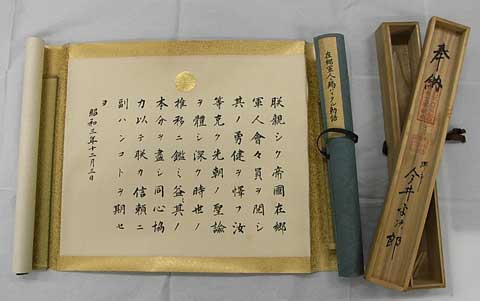 奉納
在郷軍人ニ賜ハリタル勅語
朕親シク帝國在郷
軍人會々員ヲ閲シ
其ノ勇健ヲ懌フ汝
等克ク先朝ノ聖諭
ヲ體シ深ク時世ノ
推移ニ鑑ミ益其ノ
本分ヲ盡シ同心協
力以テ朕カ信頼ニ
副ハンコトヲ期セ
ヨ
昭和三年十二月三日
今井
郎